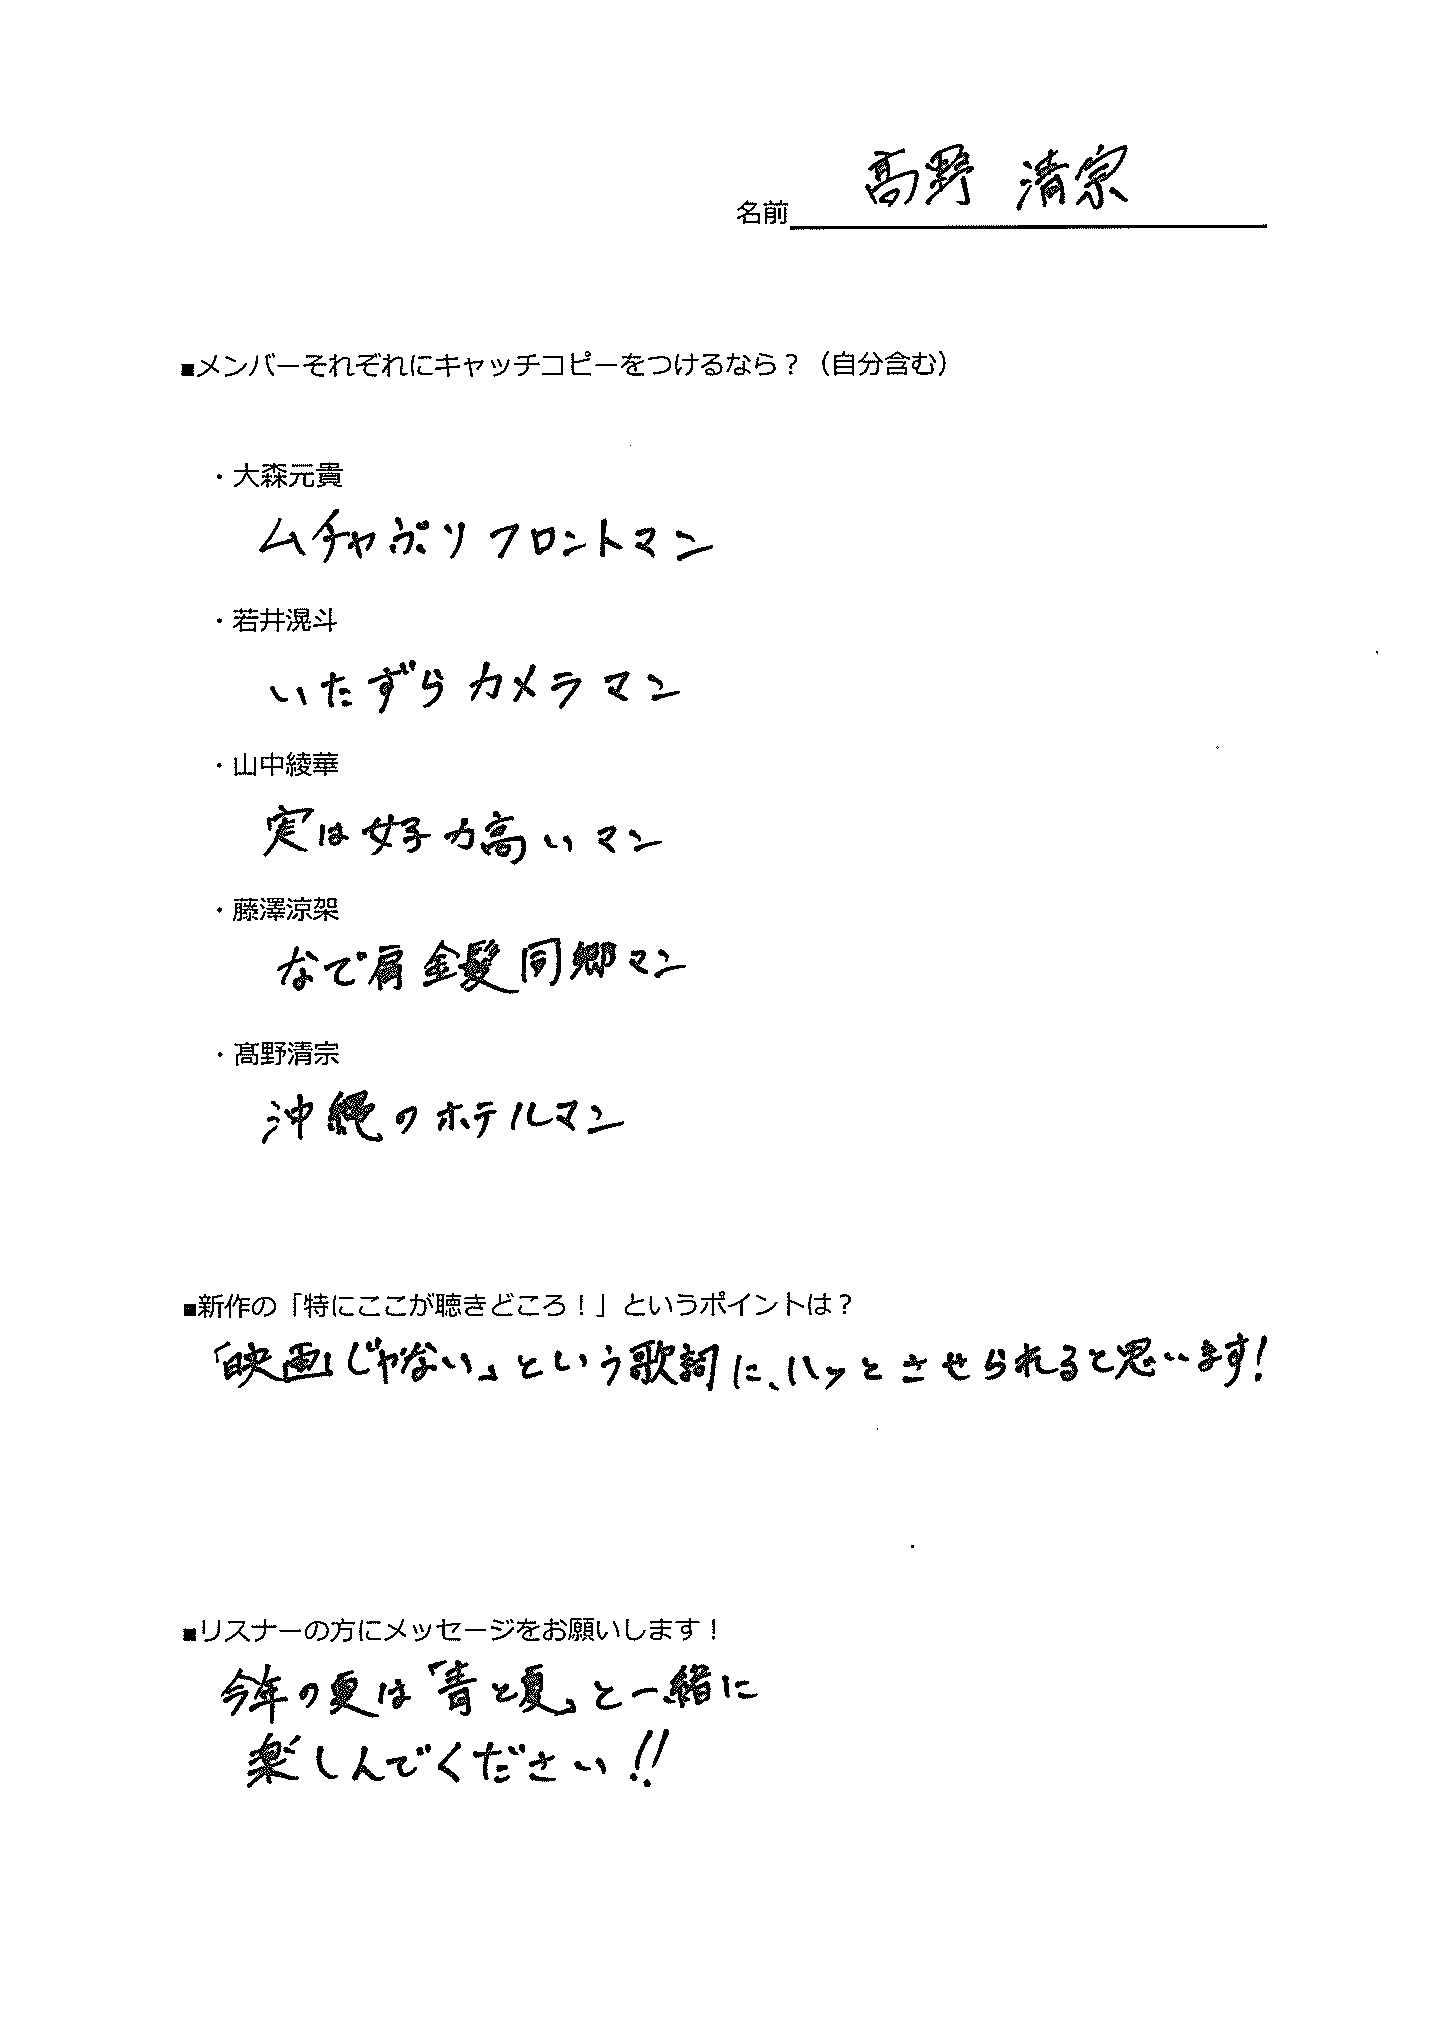 名前 髙野 清宗
■メンバーそれぞれにキャッチコピーをつけるなら？（自分含む）
・大森元貴
ムチャぶり フロントマン
・若井滉斗
いたずらカメラマン
・山中綾華
実は女子力高いマン
・藤澤涼架
なで肩金髪同郷マン
・髙野清宗
沖縄のホテルマン
■新作の「特にここが聴きどころ！」というポイントは？
「映画じゃない」という歌詞に、ハッとさせられると思います!
■リスナーの方にメッセージをお願いします！
今年の夏は「青と夏」と一緒に
楽しんでください!!